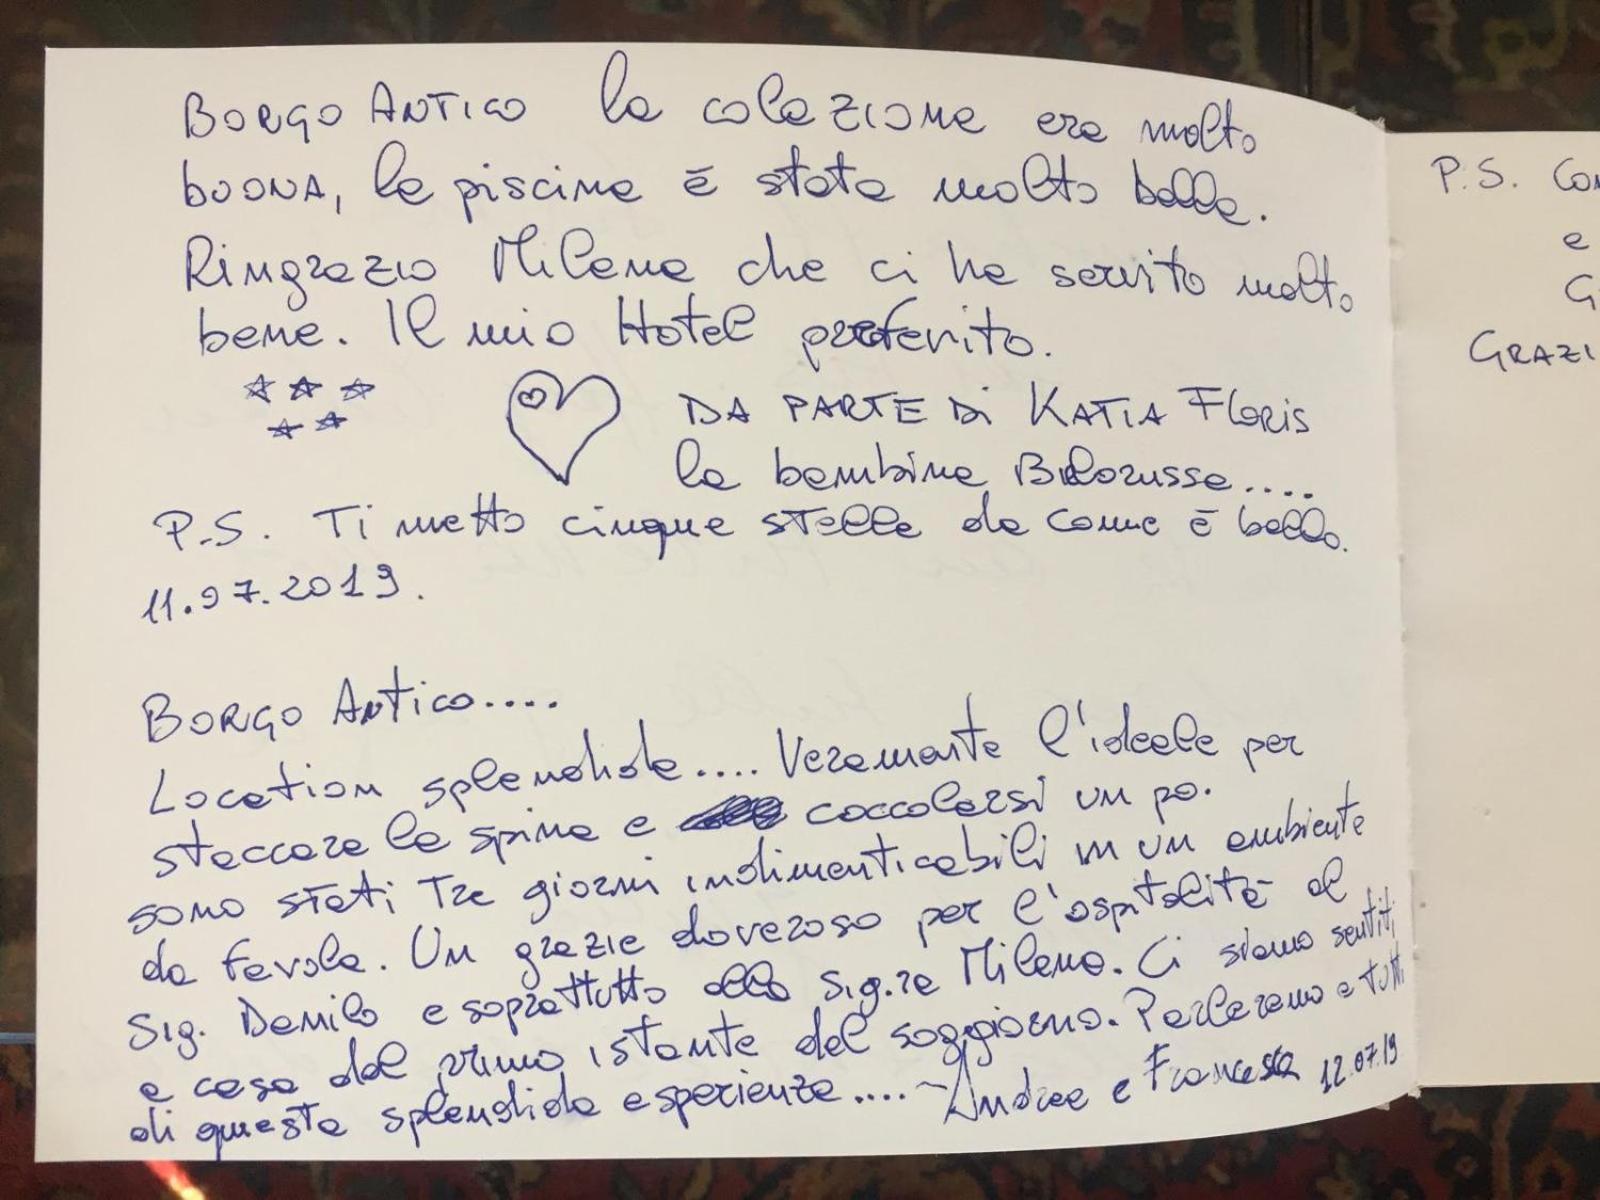 BORGO ANTICO la colazione era molto
buona, la piscina è stata molto bella.
Ringrazio Milena che ci ha servito molto
bene. Il mio Hotel preferito.
DA PARTE Di KATIA Floris
la bambina Bilorussa....
P.S. Ti metto cinque stelle da come è bello.
11.07.2019.
BORGO ANTICO....
Location splendida.... Veramente l'ideale per
staccare la spina e coccolarsi un po.
sono stati tre giorni indimenticabili in un ambiente
da favola. Un grazie doveroso per l'ospitalità al
Sig. Danilo e soprattutto alla Sig.ra Milena. Ci siamo sentiti
a casa dal primo istante del soggiorno. Parleremo a tutti
di questa splendida esperienza.... Andrea e Francesca 12.07.19
P.S. Con
e
G
GRAZI